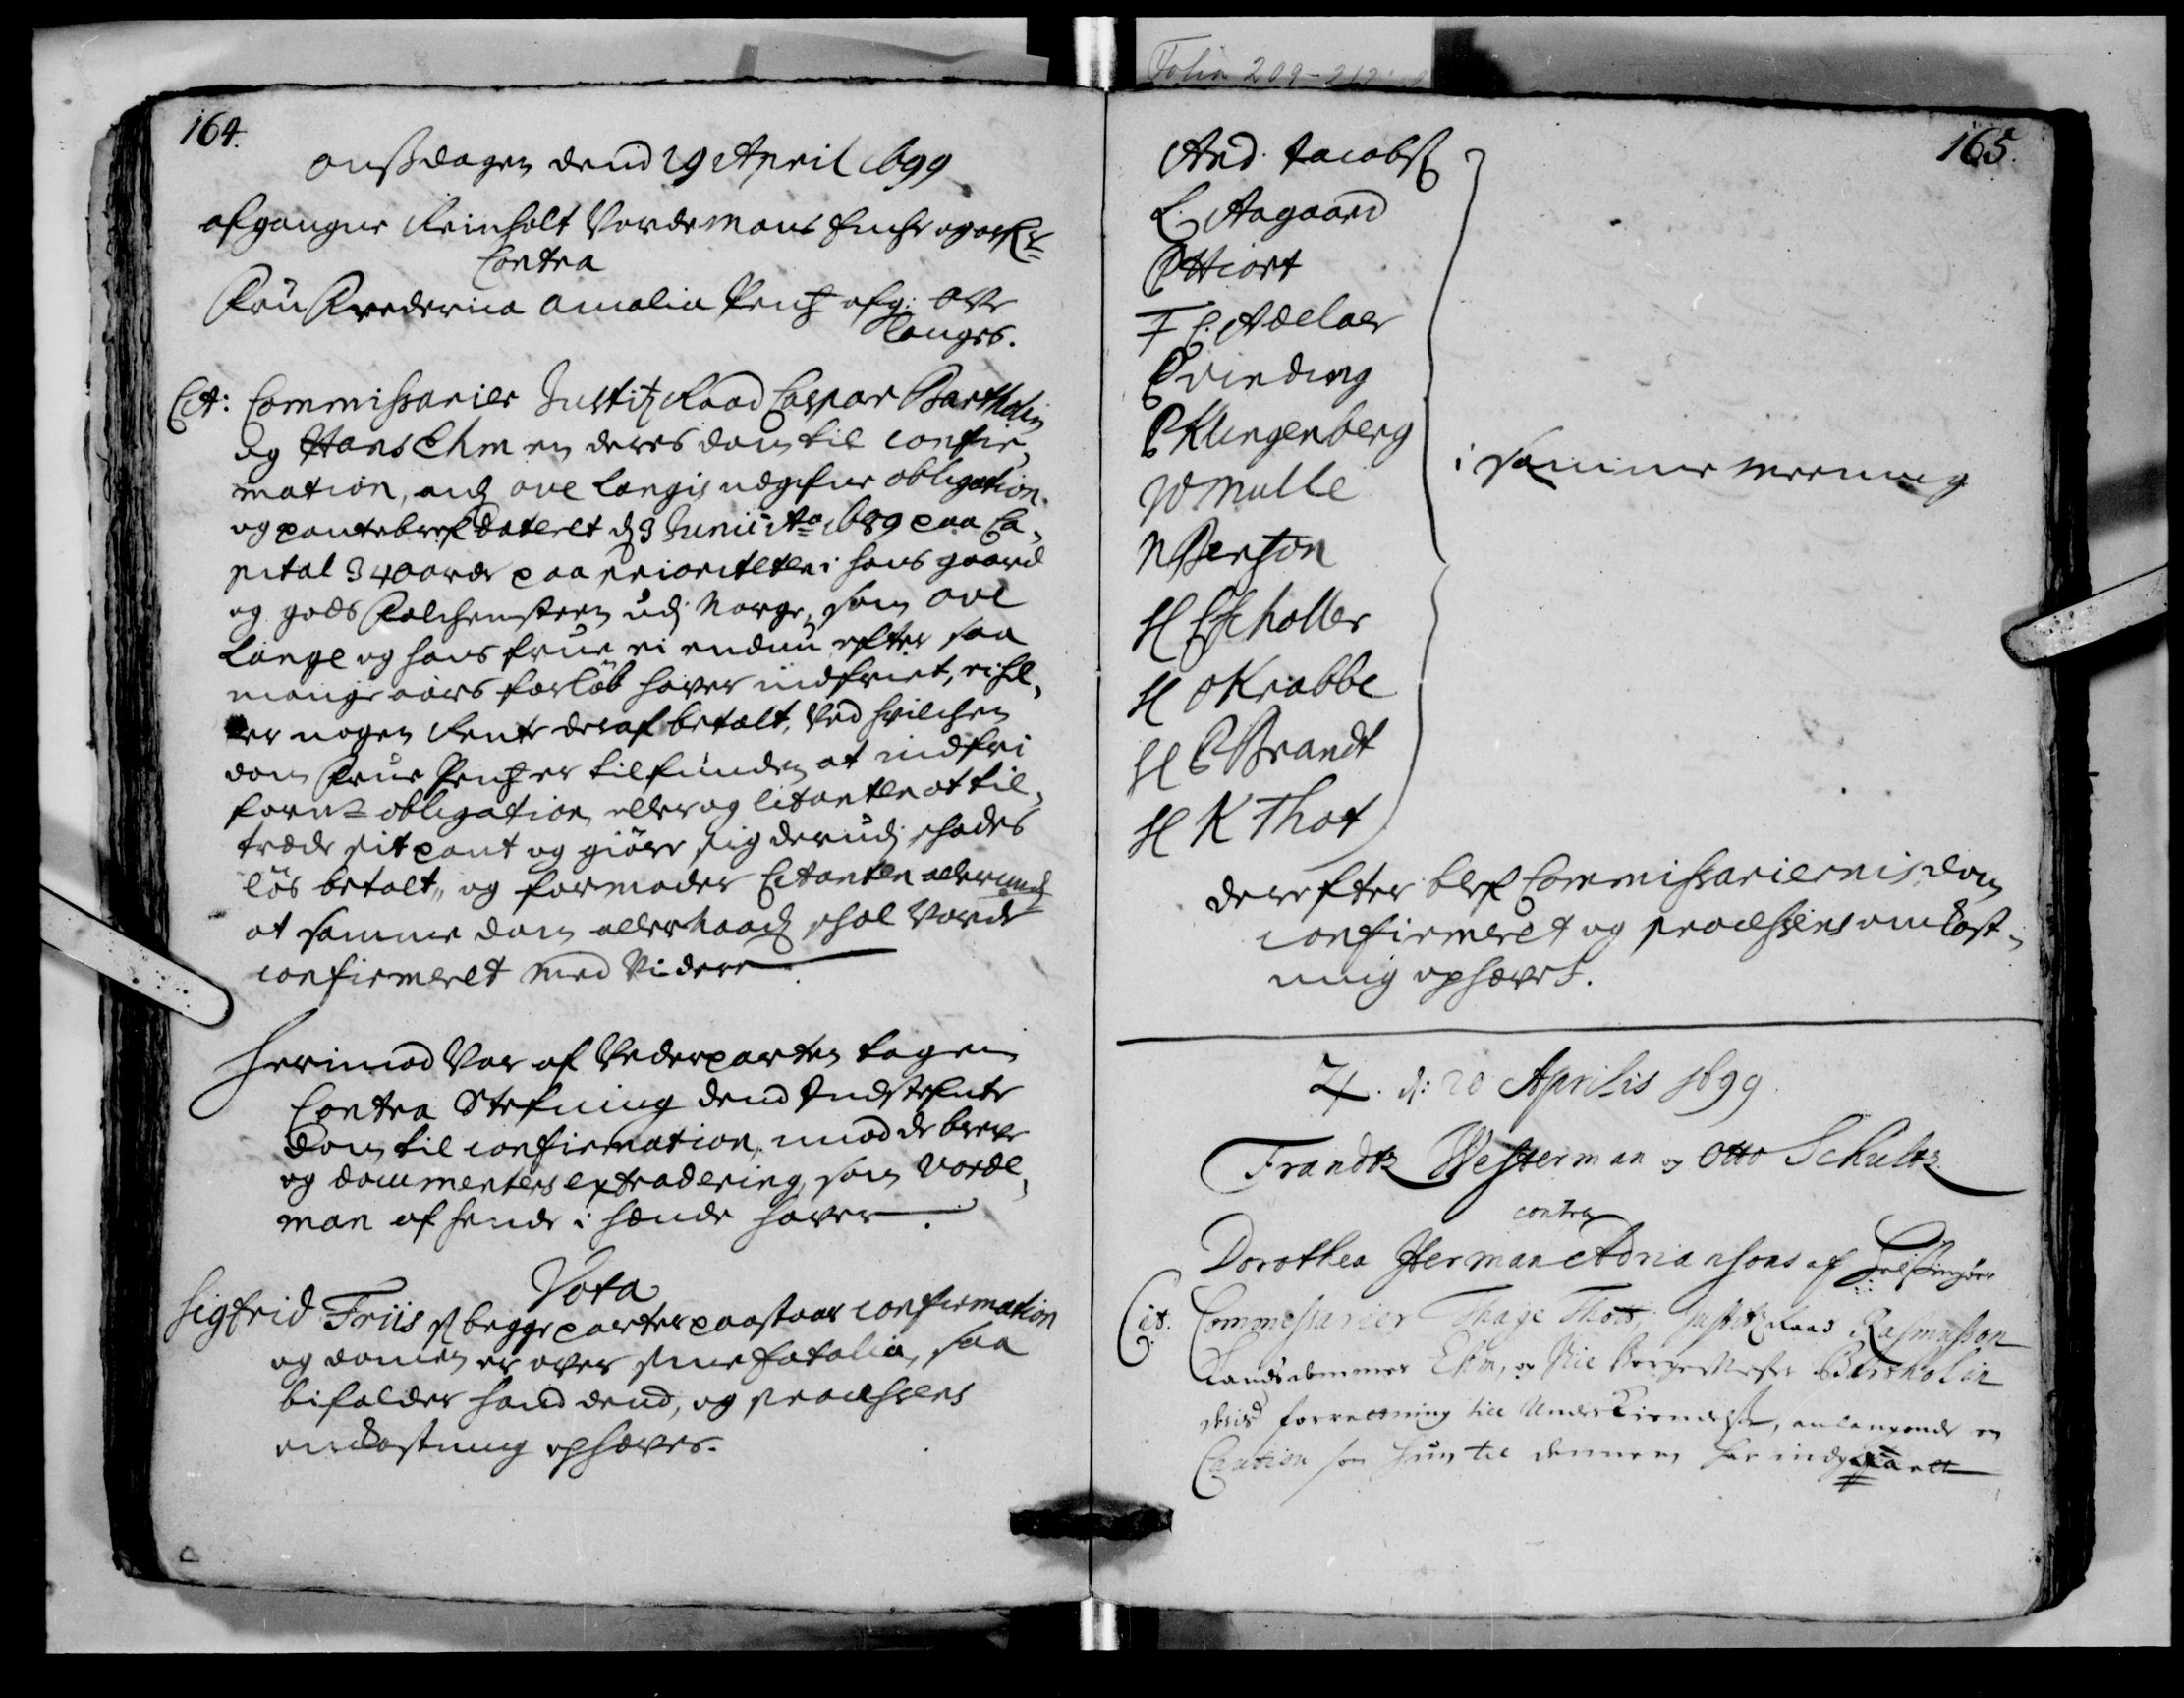 Folia 209-212
164.
onsdagen dend 29 April 1699
afgangne Reinholt Vordemans Enche og arf.
Contra
Fru Frederica Amalia Pentz afg: Ove
Langes.
Cit: Commissarier Justitz Raad Caspar Bartholin
og Hans Ehm en deres dom til confir,
mation, and ove Langis udgifne obligation
og pantebref dateret d 3 Junii Ao 1689 paa Ca,
pital 3400 rdr paa prioriteten i hans gaard
og gods Falchensteen udj Norge, som ove
Lange og hans frue ei endnu efter saa
mange aars forløb hafver indfriet, ei hel,
ler nogen Rente deraf betalt, Ved hvilchen
dom Frue Pentz er tilfunden at indfri
forne obligation eller og Citanten at til,
træde sit pant og giøre sig derudj schades
løs betalt, og formoder Citanten allerund
at samme dom allernaad schal Vorde
confirmeret med Videre.
Herimod Var af Vederparten tagen
Contra Stefning dend Indstefnte
dom til confirmation, imod de brefve
og documenters extradering, som Vorde,
man af hende i hænde hafver.
Vota
Sigfrid Friis st begge parter paastaar confirmation
og domen er over sine fatalia, saa
bifalder hand dend, og processens
omkostning ophæves.
165.
And. Jacobs
L. Aagaard
P Hiort
F C. Adelaer
P vinding
P Klingenberg
W Mulle
N Benzon
i samme meening
H C Scholler
H O Krabbe
H P Brandt
H K Thot
derefter blef Commissariernis dom
confirmeret og processens omkost,
ning ophævet.
d: 20 Aprilis 1699.
Frandtz Westerman og Otto Schultz
contra
Dorothea Herman Adriansons af Helsingøer
Cit. Commissarier Thage Thott, Justitz Raad Rasmusson
Landsdommer Ehm, og Vice Borgemester Bartholin
deris forretning till Underkiendelse, anlangende en
Caution som hun til dennem har indgaaett